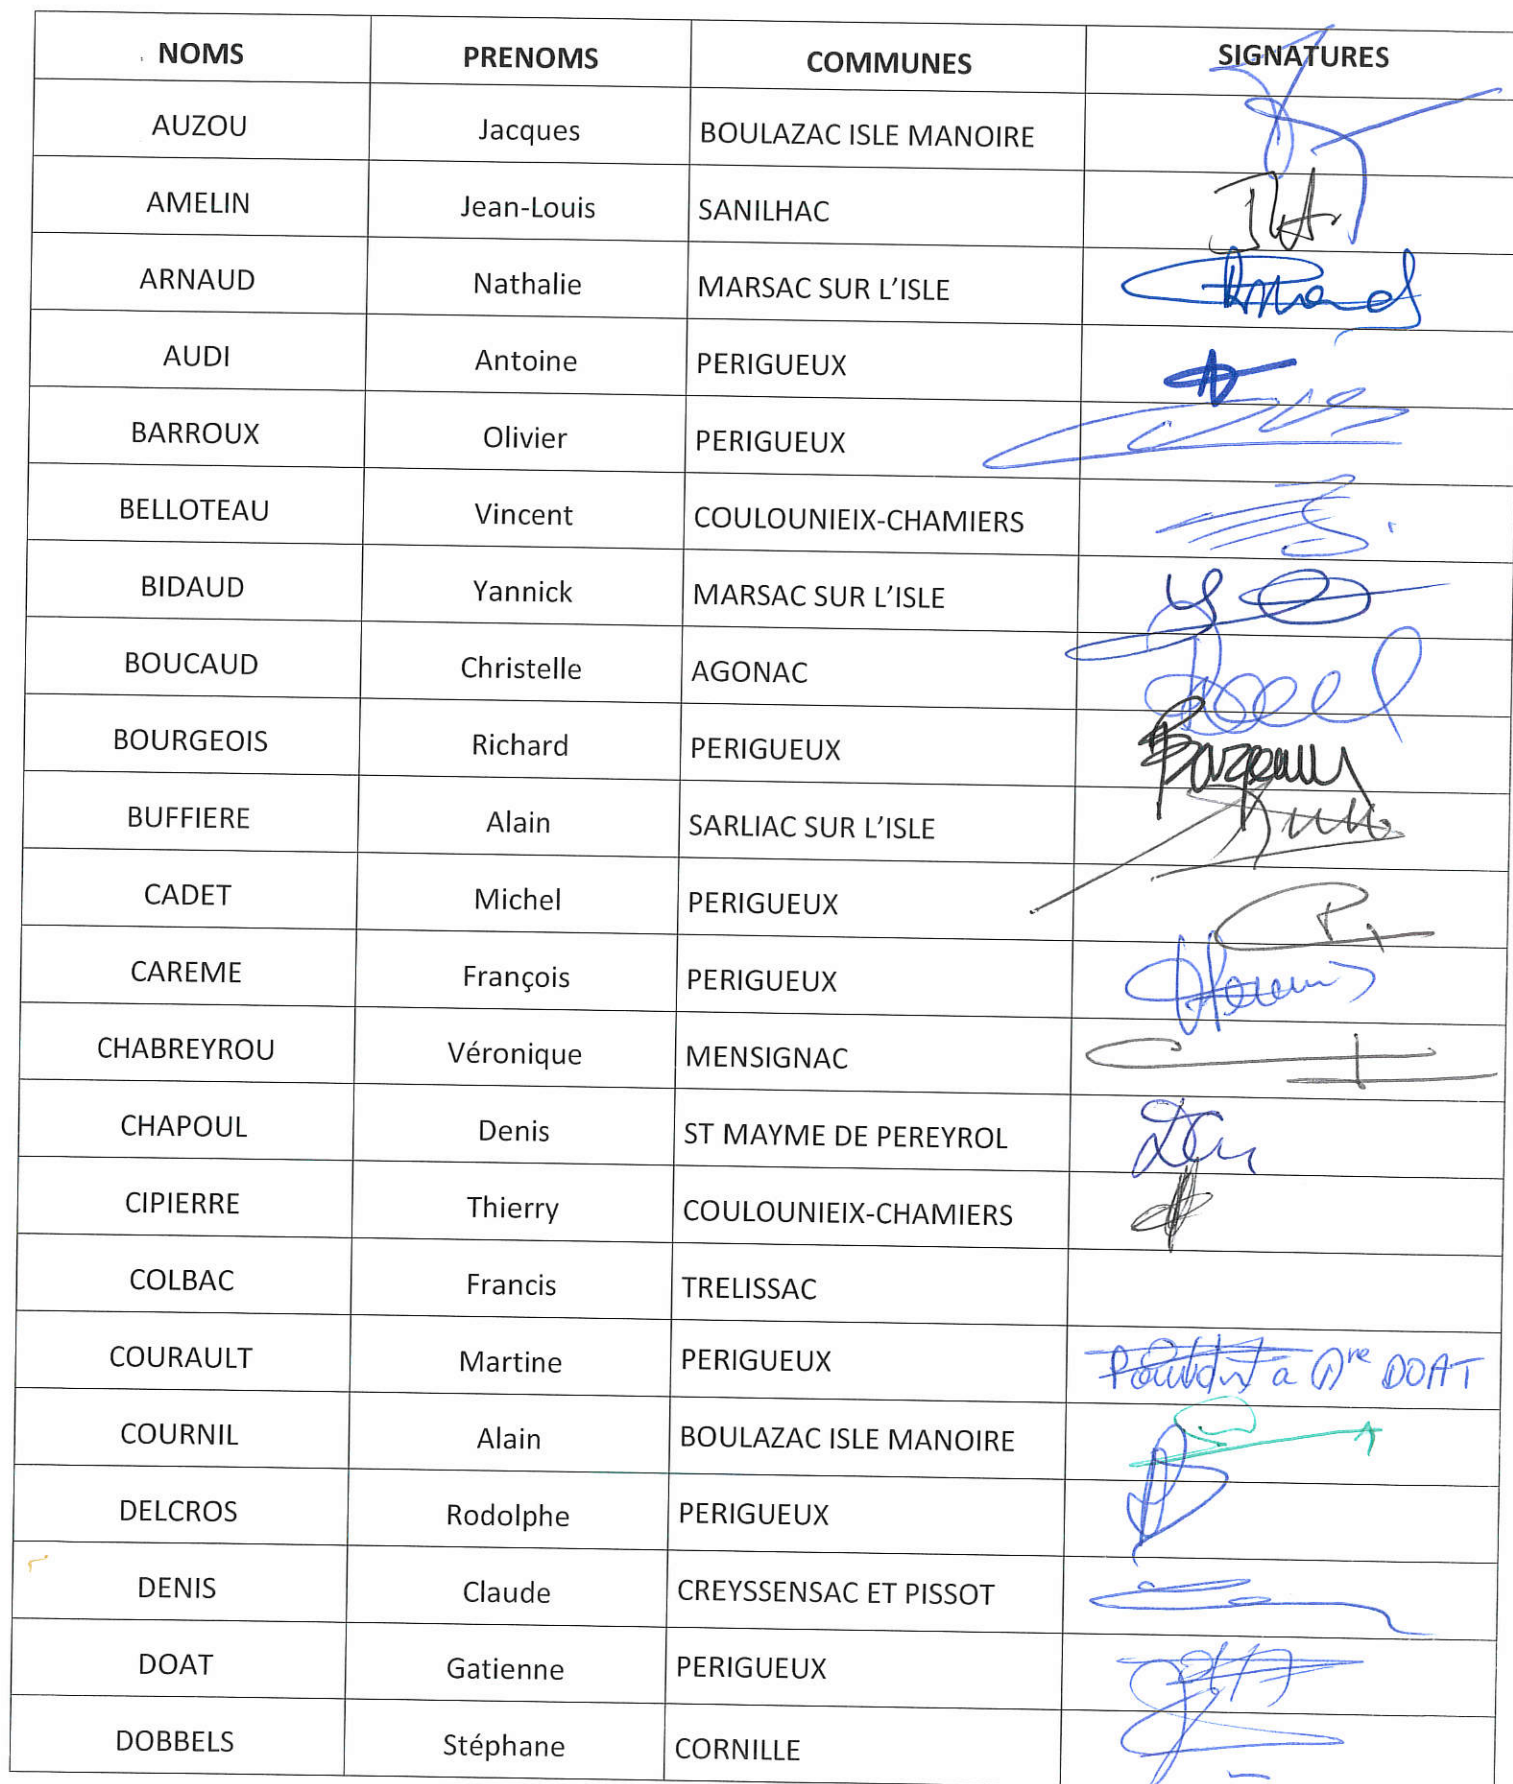 NOMS PRENOMS COMMUNES SIGNATURES
AUZOU Jacques BOULAZAC ISLE MANOIRE
AMELIN Jean-Louis SANILHAC
ARNAUD Nathalie MARSAC SUR L'ISLE
AUDI Antoine PERIGUEUX
BARROUX Olivier PERIGUEUX
BELLOTEAU Vincent COULOUNIEIX-CHAMIERS
BIDAUD Yannick MARSAC SUR L'ISLE
BOUCAUD Christelle AGONAC
BOURGEOIS Richard PERIGUEUX
BUFFIERE Alain SARLIAC SUR L'ISLE
CADET Michel PERIGUEUX
CAREME François PERIGUEUX
CHABREYROU Véronique MENSIGNAC
CHAPOUL Denis ST MAYME DE PEREYROL
CIPIERRE Thierry COULOUNIEIX-CHAMIERS
COLBAC Francis TRELISSAC
COURAULT Martine PERIGUEUX a DOAT
COURNIL Alain BOULAZAC ISLE MANOIRE
DELCROS Rodolphe PERIGUEUX
DENIS Claude CREYSSENSAC ET PISSOT
DOAT Gatienne PERIGUEUX
DOBBELS Stéphane CORNILLE